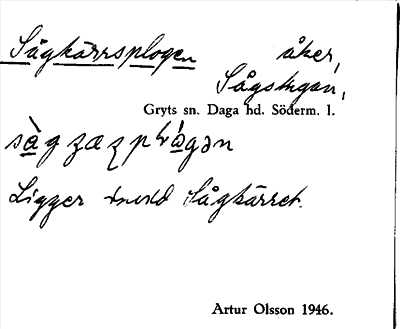 Sågkärrsplogen åker,
Sågstugan,
Gryts sn. Daga hd. Söderm. l.
Ligger invid Sågkärret.
Artur Olsson 1946.